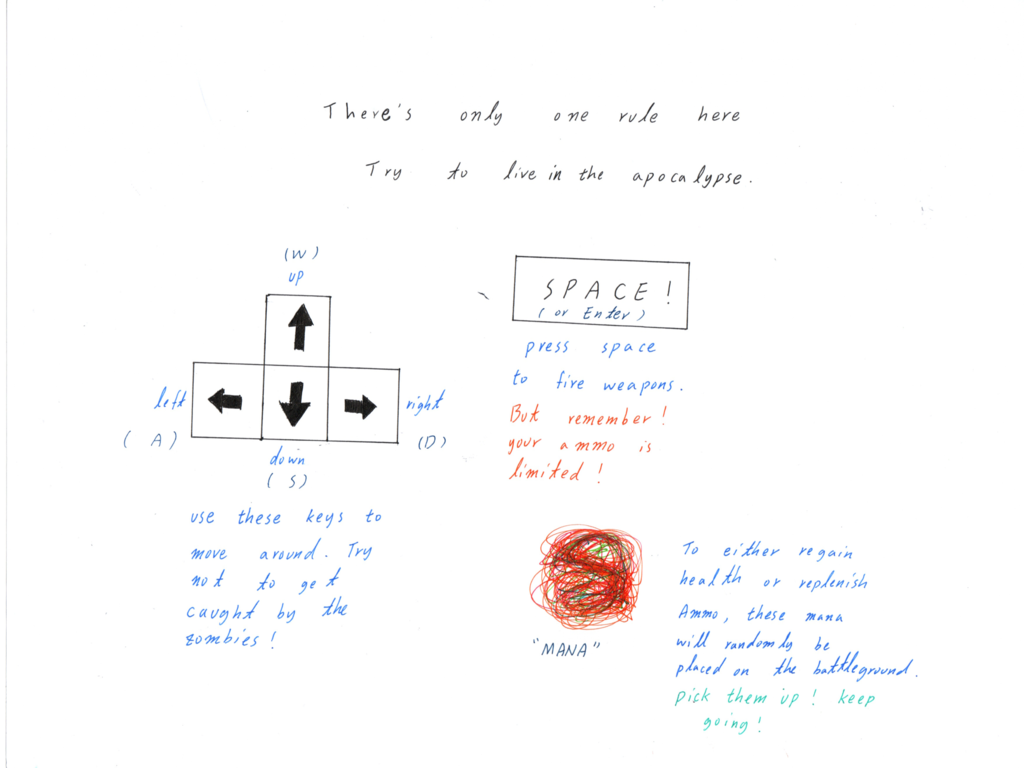 There's only one rule here
Try to live in the apocalypse.
(W)
up
left
(A)
right
(D)
down
(S)
use these keys to
move around. Try
not to get
caught by the
zombies!
SPACE!
(or Enter)
press space
to fire weapons.
But remember!
your ammo is
limited!
"MANA"
To either regain
health or replenish
Ammo, these mana
will randomly be
placed on the battleground.
pick them up! keep
going!